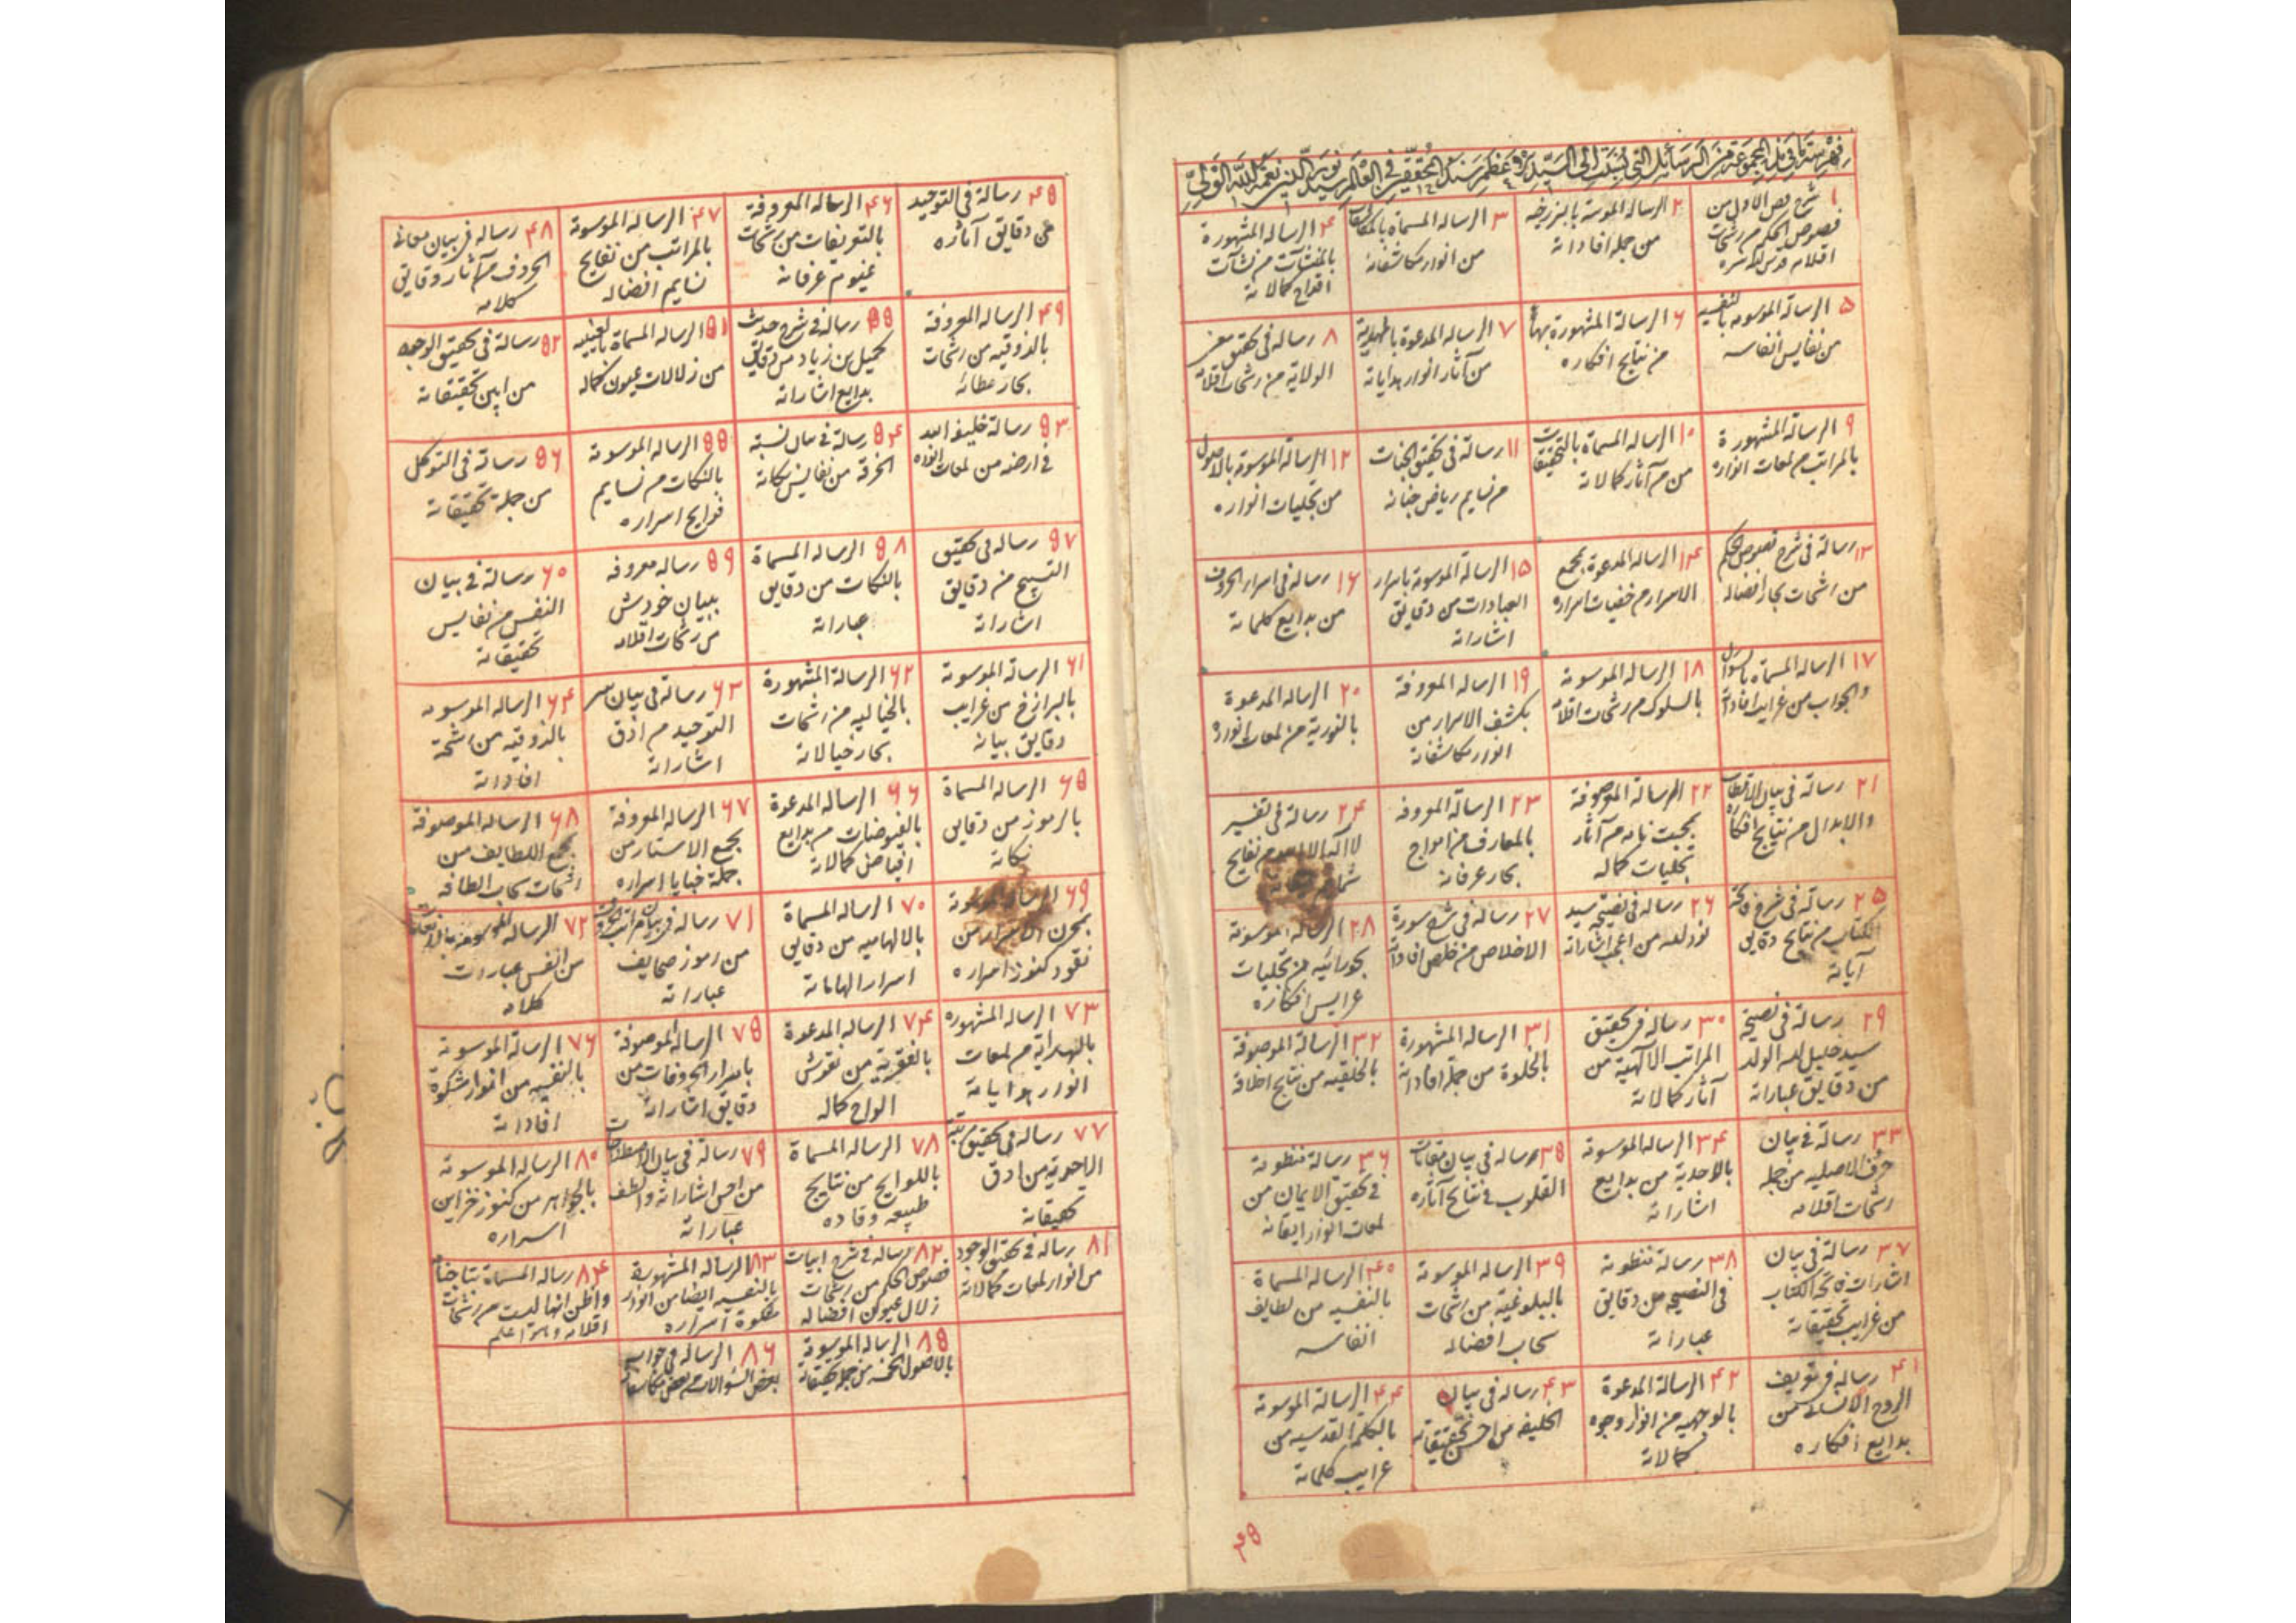 فهرسة ما فى هذه المجموعة من الرسائل التى نسبت الى السيد نور الدين نعمة الله الولى
۱ شرح فص الاول من
فصوص الحكم من رشحات
اقلامه قدس الله سره
۲ الرساله الموسومة بالبرزخيه
من جمله افاداته
۳ الرساله المسماة بالمكاشفات
من انوار مكاشفاته
۴ الرساله المشهورة
بالمنشآت من نشآت
اقداح كمالاته
۵ الرسالة الموسومه بالنفسيه
من نفايس انفاسه
۶ الرسالة المشهورة بها
من نتايج افكاره
۷ الرساله المدعوة بالمهدية
من آثار انوار هداياته
۸ رسالة فى تحقيق معنى
الولاية من رشحات اقلامه
۹ الرسالة المشهورة
بالمراتب من لمعات انواره
۱۰ الرساله المسماة بالتحقيقات
من آثار كمالاته
۱۱ رسالة فى تحقيق الجنات
من نسايم رياض جنانه
۱۲ الرسالة الموسومة بالاصول
من تجليات انواره
۱۳ رسالة فى شرح فصوص الحكم
من رشحات بحار افضاله
۱۴ الرساله المدعوة بمجمع
الاسرار من خفيات اسراره
۱۵ الرسالة الموسومة باسرار
العبادات من دقايق
اشاراته
۱۶ رسالة فى اسرار الحروف
من بدايع كلماته
۱۷ الرسالة المسماة بالسؤال
والجواب من غرايب افاداته
۱۸ الرسالة الموسومة
بالسلوك من رشحات اقلامه
۱۹ الرسالة المعروفة
بكشف الاسرار من
انوار مكاشفاته
۲۰ الرسالة المدعوة
بالنورية من لمعات انواره
۲۱ رسالة فى بيان الاقطاب
والابدال من نتايج افكاره
۲۲ الرسالة الموصوفة
بمحبت نامه من آثار
تجليات كماله
۲۳ الرسالة المعروفه
بالمعارف من امواج
بحار عرفانه
۲۴ رسالة فى تفسير
لا اله الا الله من نفايح
۲۵ رسالة فى شرح فاتحة
الكتاب من نتايج دقايق
آياته
۲۶ رسالة فى نصيحة سيد
نور الله من اعجب اشاراته
۲۷ رسالة فى شرح سورة
الاخلاص من خلص افاداته
۲۸ الرسالة الموسومة
بحورائيه من تجليات
عرايس افكاره
۲۹ رسالة فى نصيحة
سيد خليل الله الولد
من دقايق عباراته
۳۰ رسالة فى تحقيق
المراتب الالهية من
آثار كمالاته
۳۱ الرسالة المشهورة
بالخلوة من جملة افاداته
۳۲ الرسالة الموصوفة
بالخلقيه من نتايج اخلاقه
۳۳ رسالة فى بيان
حرف الاصليه من جمله
رشحات اقلامه
۳۴ الرسالة الموسومة
بالاحدية من بدايع
اشاراته
۳۵ رساله فى بيان مقامات
القلوب فى نتايج آثاره
۳۶ رسالة منظومة
فى تحقيق الايمان من
لمعات انوار ايقانه
۳۷ رسالة فى بيان
اشارات فاتحة الكتاب
من غرايب تحقيقاته
۳۸ رسالة منظومة
فى النصيحه من دقايق
عباراته
۳۹ الرسالة الموسومة
بالبلوغيه من رشحات
سحاب افضاله
۴۰ الرساله المسماة
بالنفسيه من لطايف
انفاسه
۴۱ رساله فى تعريف
الروح الانسانى من
بدايع افكاره
۴۲ الرسالة المدعوة
بالوجهيه من انوار وجوه
كمالاته
۴۳ رسالة فى بيان
الخليفه من احسن تحقيقاته
۴۴ الرسالة الموسومة
بالكلم القدسيه من
غرايب كلماته
۴۵
۴۵ رسالة فى التوحيد
من دقايق آثاره
۴۶ الرساله المعروفة
بالتعريفات من رشحات
غيوم عرفانه
۴۷ الرسالة الموسومة
بالمراتب من نفايح
نسايم افضاله
۴۸ رسالة فى بيان معانى
الحروف من آثار دقايق
كلامه
۴۹ الرساله المعروفة
بالذوقيه من رشحات
بحار عطائه
۵۰ رسالة فى شرح حديث
كميل بن زياد من دقايق
بدايع اشاراته
۵۱ الرسالة المسماة بالغيبيه
من زلالات عيون كماله
۵۲ رسالة فى تحقيق الوجود
من ابين تحقيقاته
۵۳ رسالة خليفة الله
فى ارضه من لمعات انواره
۵۴ رسالة فى بيان نسبة
الخرقة من نفايس نكاته
۵۵ الرساله الموسومة
بالنكات من نسايم
فوايح اسراره
۵۶ رسالة فى التوكل
من جملة تحقيقاته
۵۷ رساله فى تحقيق
التسبيح من دقايق
اشاراته
۵۸ الرساله المسماة
بالنكات من دقايق
عباراته
۵۹ رساله معروفه
ببيان خودش
من رشحات اقلامه
۶۰ رسالة فى بيان
النفس من نفايس
تحقيقاته
۶۱ الرسالة الموسومة
بالبرازخ من غرايب
دقايق بيانه
۶۲ الرسالة المشهورة
بالخياليه من رشحات
بحار خيالاته
۶۳ رسالة فى بيان سر
التوحيد من ادق
اشاراته
۶۴ الرسالة الموسومه
بالذوقيه من رشحة
افاداته
۶۵ الرساله المسماة
بالرموز من دقايق
نكاته
۶۶ الرساله المدعوة
بالفيوضات من بدايع
افياض كمالاته
۶۷ الرسالة المعروفة
بمجمع الاستار من
جملة خبايا اسراره
۶۸ الرساله الموصوفة
بمجمع اللطايف من
رشحات سحاب الطافه
۶۹ الرسالة الموسومة
بمخزن الاسرار من
نقود كنوز اسراره
۷۰ الرساله المسماة
بالالهاميه من دقايق
اسرار الهاماته
۷۱ رسالة فى بيان مراتب الحروف
من رموز صحايف
عباراته
۷۲ الرساله الموسومه
من انفس عبارات
كلامه
۷۳ الرساله المشهوره
بالهداية من لمعات
انوار هداياته
۷۴ الرساله المدعوة
بالفقرية من نقوش
الواح كماله
۷۵ الرساله الموصوفة
باسرار الحروفات من
دقايق اشاراته
۷۶ الرسالة الموسومة
بالنفسيه من انوار مشكوة
افاداته
۷۷ رسالة فى تحقيق مرتبة
الواحدية من ادق
تحقيقاته
۷۸ الرساله المسماة
باللوايح من نتايج
طبيعه وقاده
۷۹ رسالة فى بيان الاصطلاحات
من احسن اشاراته والطف
عباراته
۸۰ الرساله الموسومة
بالجواهر من كنوز خزاين
اسراره
۸۱ رسالة فى تحقيق الوجود
من انوار لمعات كمالاته
۸۲ رسالة فى شرح ابيات
فصوص الحكم من رشحات
زلال عيون افضاله
۸۳ الرساله المشهورة
بالنفسيه ايضا من انوار
مشكوة اسراره
۸۴ رسالة المسماة
واظن انها ليست من رشحات
اقلامه والله اعلم
۸۵ الرسالة الموسومة
بالاصول الخمسه من جمله تحقيقاته
۸۶ الرساله فى جواب
بعض السؤالات من بعض مكاشفاته